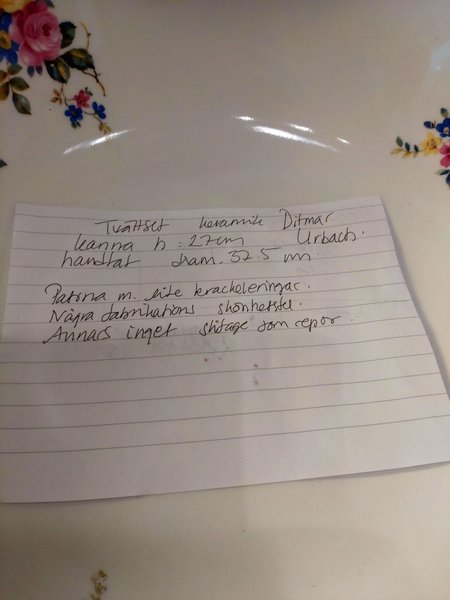 Tvättset keramik Ditmar
kanna h : 27cm Urbach.
handfat diam. 37.5 cm
Patina m. lite krackeleringar.
Några fabrikations skönhetsfel.
Annars inget slitage som repor.